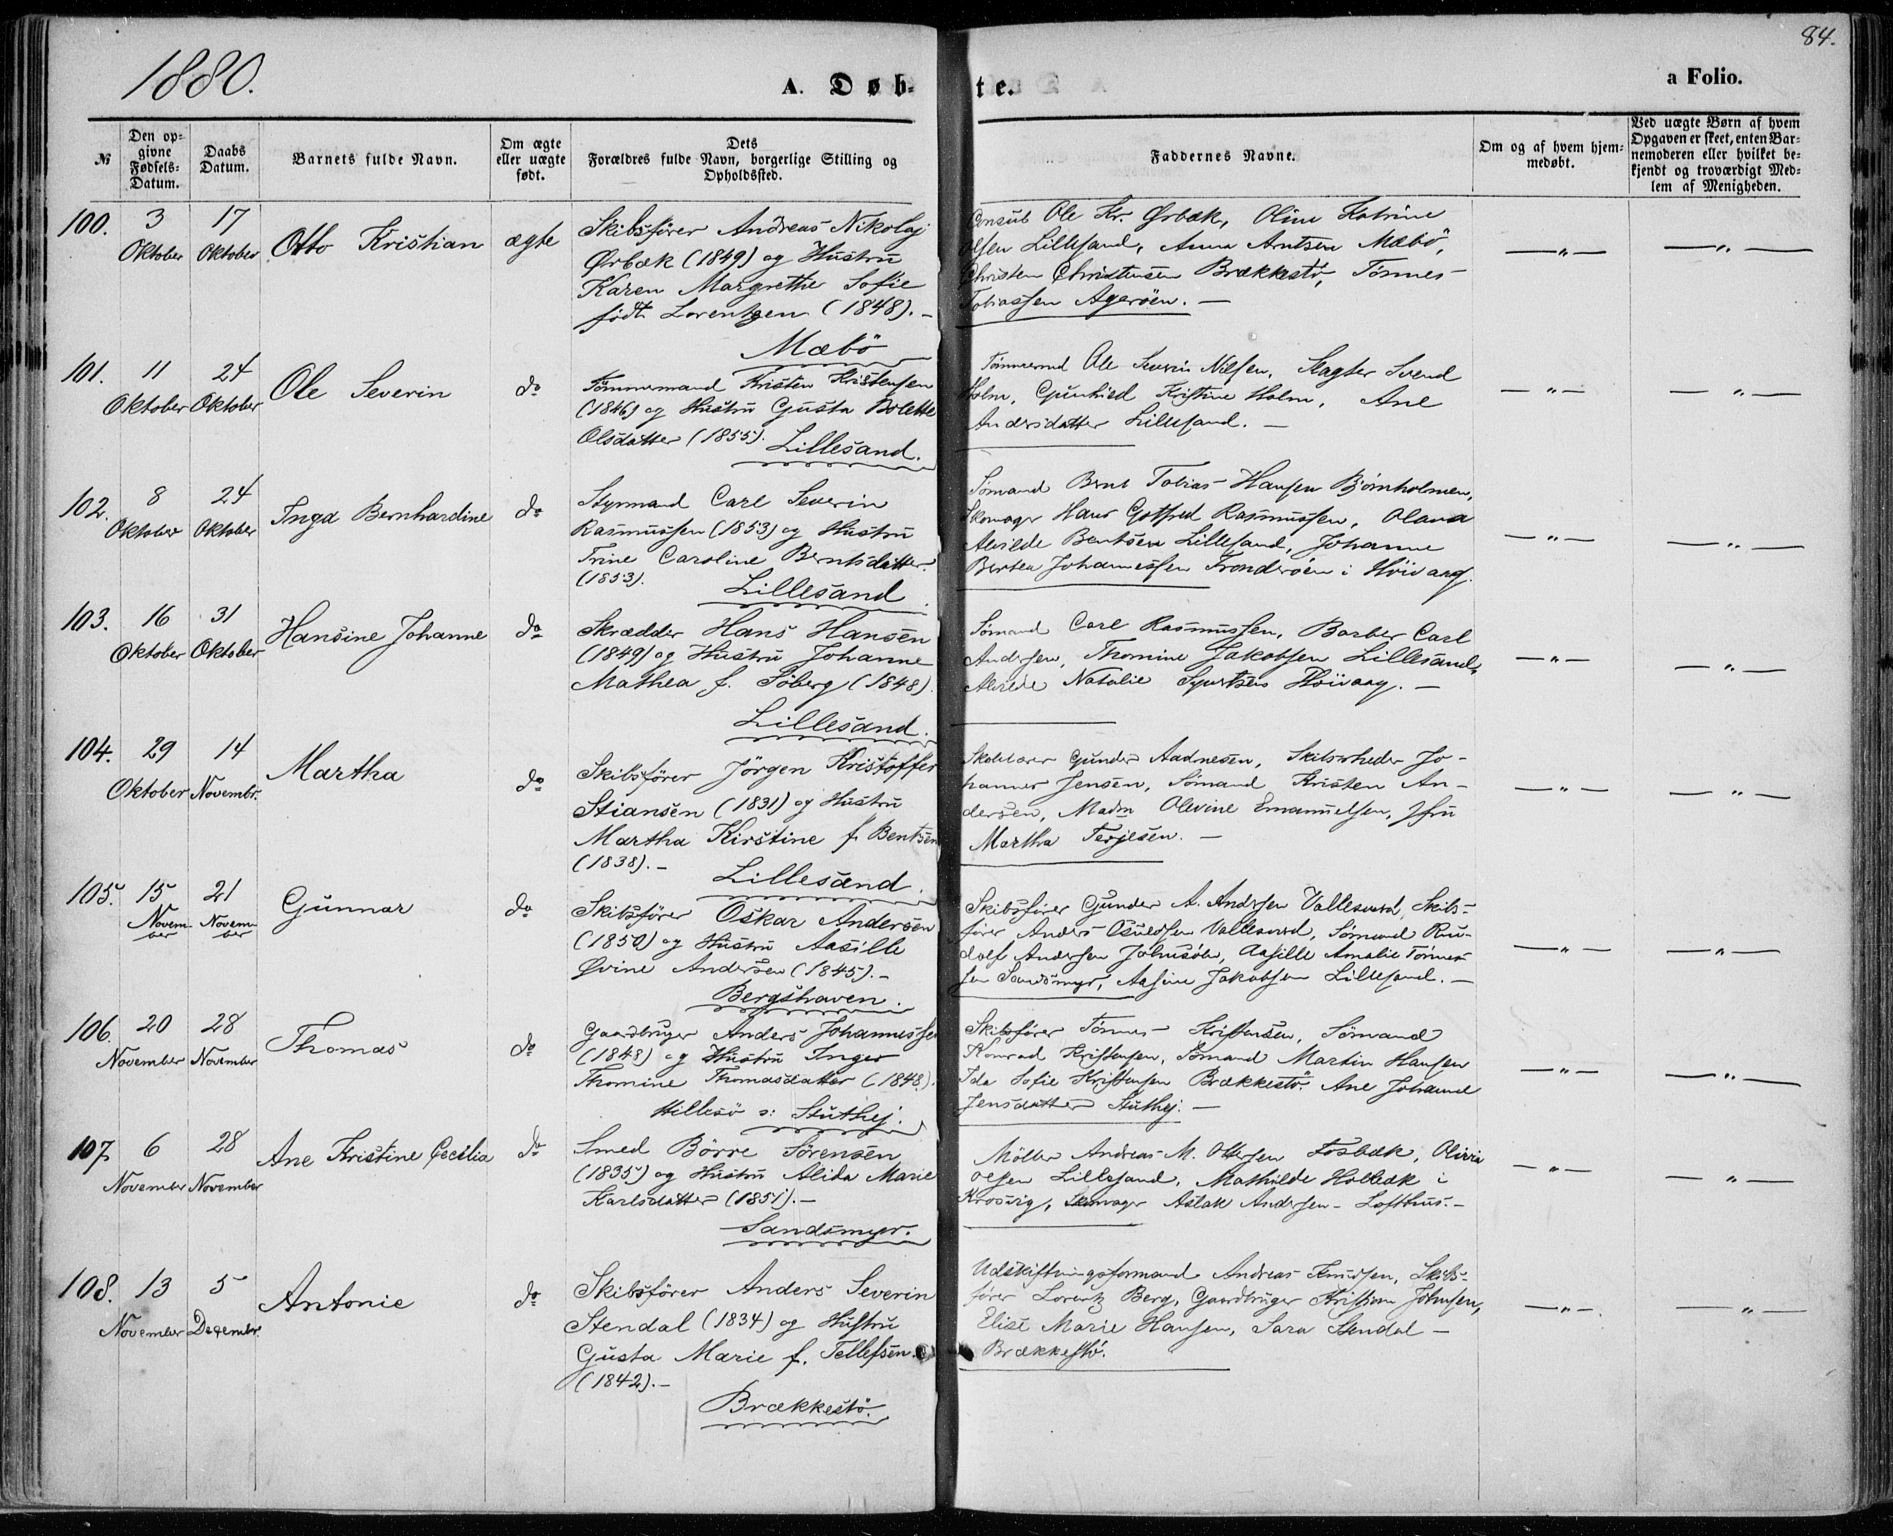 1880.
A. Døb-
te.
a Folio.
84.
№
Den op-
givne
Fødsels-
Datum.
Daabs
Datum.
Barnets fulde Navn.
Om ægte
eller uægte
født.
Dets
Forældres fulde Navn, borgerlige Stilling og
Opholdssted.
Faddernes Navne.
Om og af hvem hjem-
medøbt.
Ved uægte Børn af hvem
Opgaven er skeet, enten Bar-
nemoderen eller hvilket be-
kjendt og troværdigt Med-
lem af Menigheden.
100.
3
Oktober
17
Oktober
Otto Kristian
ægte
Skibsfører Andreas Nikolaj
Ørbæk (1849) og Hustru
Karen Margrethe Sofie
født Lorentzen (1848). —
Mæbö
Ole Kr. Ørbæk, Oline Katrine
Olsen Lillesand, Anna Arntsen Mæbö,
Christen Christensen Brækkestö, Tönnes
Tobiassen Agerøen. —
— " —
— " —
101.
11
Oktober
24
Oktober
Ole Severin
do
Tömmermand Kristen Kristensen
(1846) og Hustru Gusta Bolette
Olsdatter (1855).
Lillesand.
Tömmermd Ole Severin Nilsen, Slagter Svend
Holm, Gunhild Kristine Holm, Ane
Andersdatter Lillesand. —
— " —
— " —
102.
8
Oktober
24
Oktober
Inga Bernhardine
do
Styrmand Carl Severin
Rasmussen (1853) og Hustru
Trine Caroline Berntsdatter
(1853).
Lillesand.
Sömand Bernt Tobias Hansen Bjørnholmen,
Skomager Hans Gotfred Rasmussen, Olava
Alvilde Bentsen Lillesand, Johanne
Bertea Johannessen Tronderöen i Höivaag.
— " —
— " —
103.
16
Oktober
31
Oktober
Hansine Johanne
do
Skrædder Hans Hansen
(1849) og Hustru Johanne
Mathea f. Söberg (1848).
Lillesand.
Sömand Carl Rasmussen, Barber Carl
Andersen, Thomine Jakobsen Lillesand,
Natalie Höivaag. —
— " —
— " —
104.
29
Oktober
14
Novembr.
Martha
do
Skibsfører Jörgen Kristoffer
Stiansen (1831) og Hustru
Martha Kirstine f. Bentsen
(1838). —
Lillesand.
Gunder Aadnesen, Skibsrheder Jo-
hannes Jensen, Sömand Kristen An-
dersen, Madm Olevine Emanuelsen, Jfru
Martha Terjesen. —
— " —
— " —
105.
15
Novem-
ber
21
Novem-
ber
Gunnar
do
Skibsfører Oskar Andersen
(1850) og Hustru Aasille
Øvine Andersen (1845). —
Bergshaven.
Skibsfører Gunder A. Andersen Vallesverd, Skibs-
fører Anders Vallesverd, Sömand Ru-
dolf Andersen Aasille Amalie Tönnes-
sen Sandsmyr, Aasine Jakobsen Lillesand. —
— " —
— " —
106.
20
November
28
November
Thomas
do
Gaardbruger Anders Johannessen
(1848) og Hustru Inger
Thomine Thomasdatter (1848).
Hillesö s: Stuthej.
Skibsfører Tönnes Kristensen, Sömand
Konrad Kristensen, Sömand Martin Hansen
Ida Sofie Kristensen Brækkestö. Ane Johanne
Jensdatter Stuthej. —
— " —
— " —
107.
6
November
28
November
Ane Kristine Cecilia
do
Smed Börre Sörensen
(1835) og Hustru Alida Marie
Karlsdatter (1851). —
Sandsmyr.
Möller Andreas M. Ottersen Fosbæk, Olivia
Olsen Lillesand, Mathilde Holbæk i
Krosvig, Skomager Aslak Andersen Lofthus. —
— " —
— " —
108.
13
November
5
Decembr.
Antonie
do
Skibsfører Anders Severin
Stendal (1834) og Hustru
Gusta Marie f. Tellefsen.
(1842). —
Brækkestö.
Udskiftningsformand Andreas Knudsen, Skibs-
fører Lorentz Berg, Gaardbruger Kristian Johnsen,
Elise Marie Hansen, Sara Stendal —
Brækkestö.
— " —
— " —